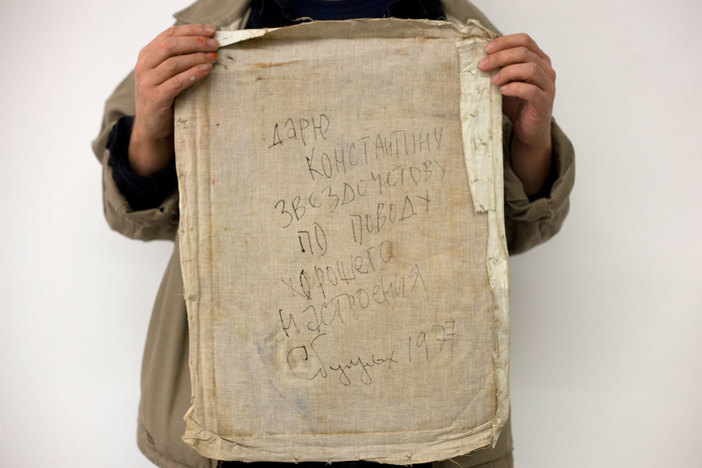 дарю
Константину
Звездочетову
по поводу
хорошего
настроения
1977